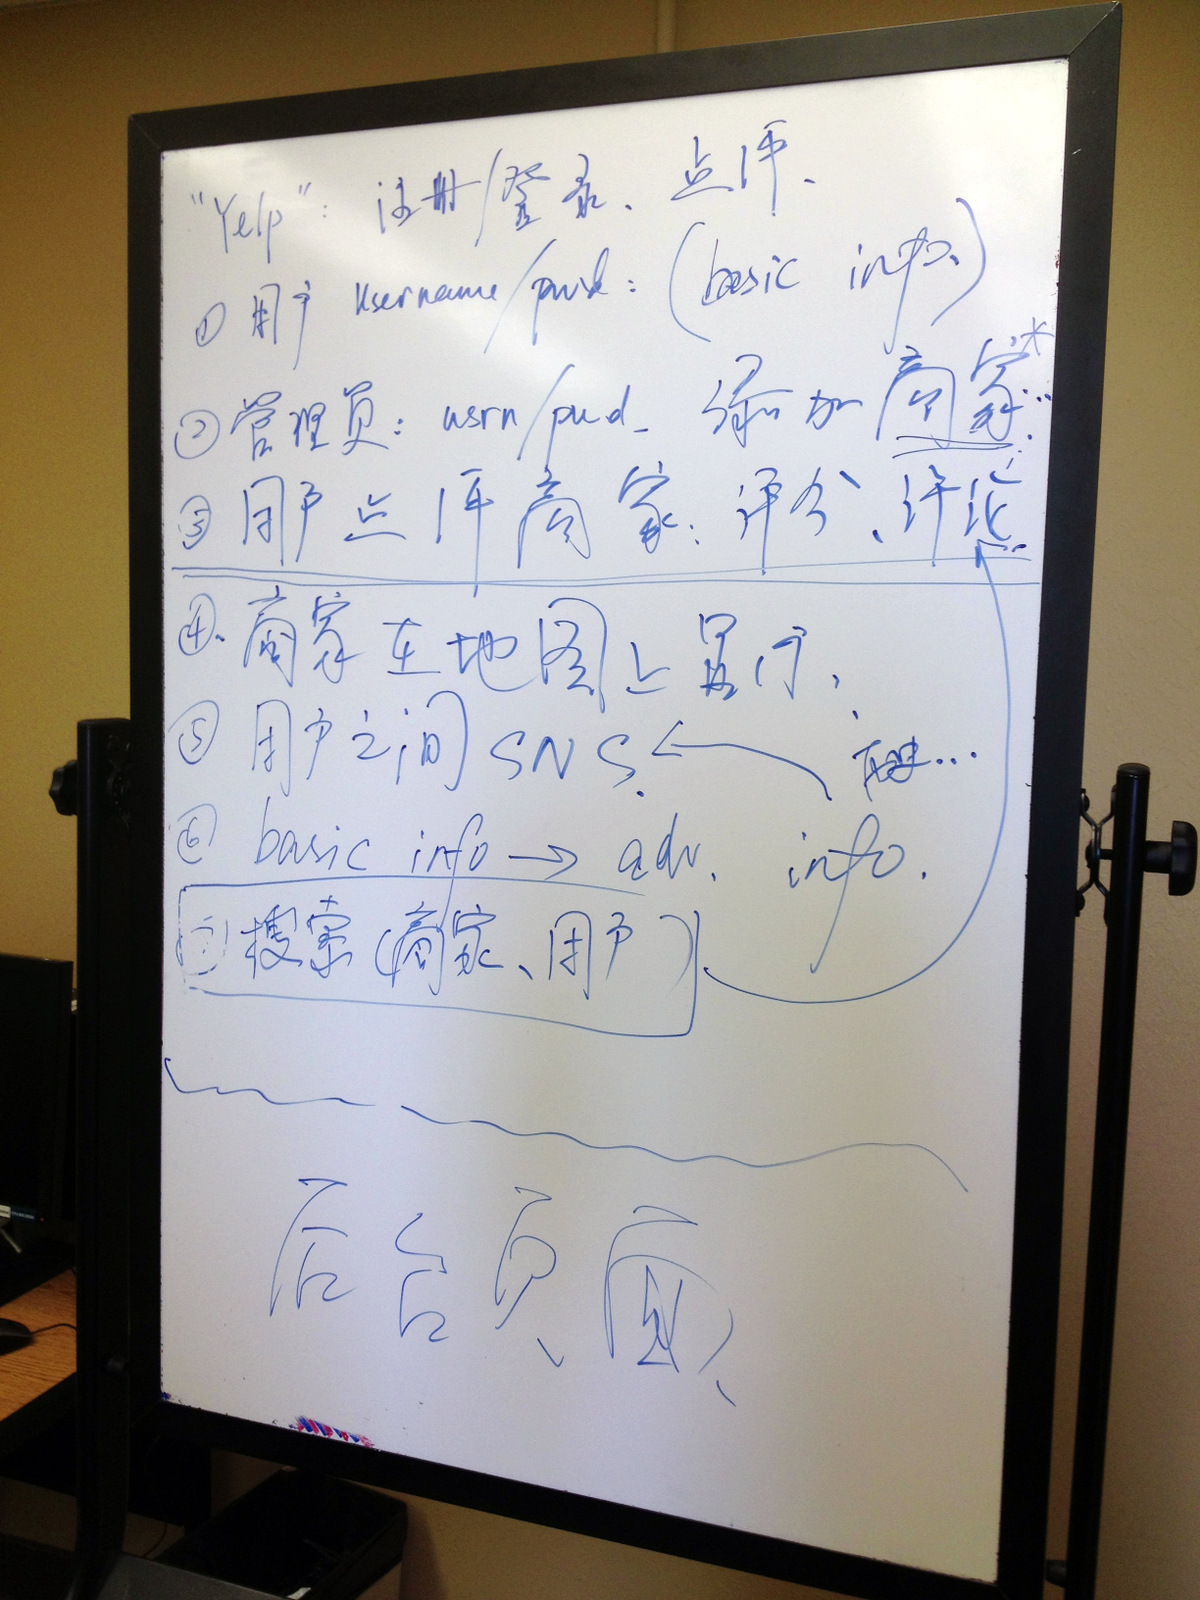 "Yelp": 注册/登录、点评.
① 用户 username/pwd: (basic info.)
② 管理员: usrn/pwd_ 添加商家*...
③ 用户点评商家: 评分、评论.
④. 商家在地图上显示.
⑤ 用户之间 SNS.
⑥ basic info → adv. info.
⑦ 搜索 (商家、用户)
后台页面